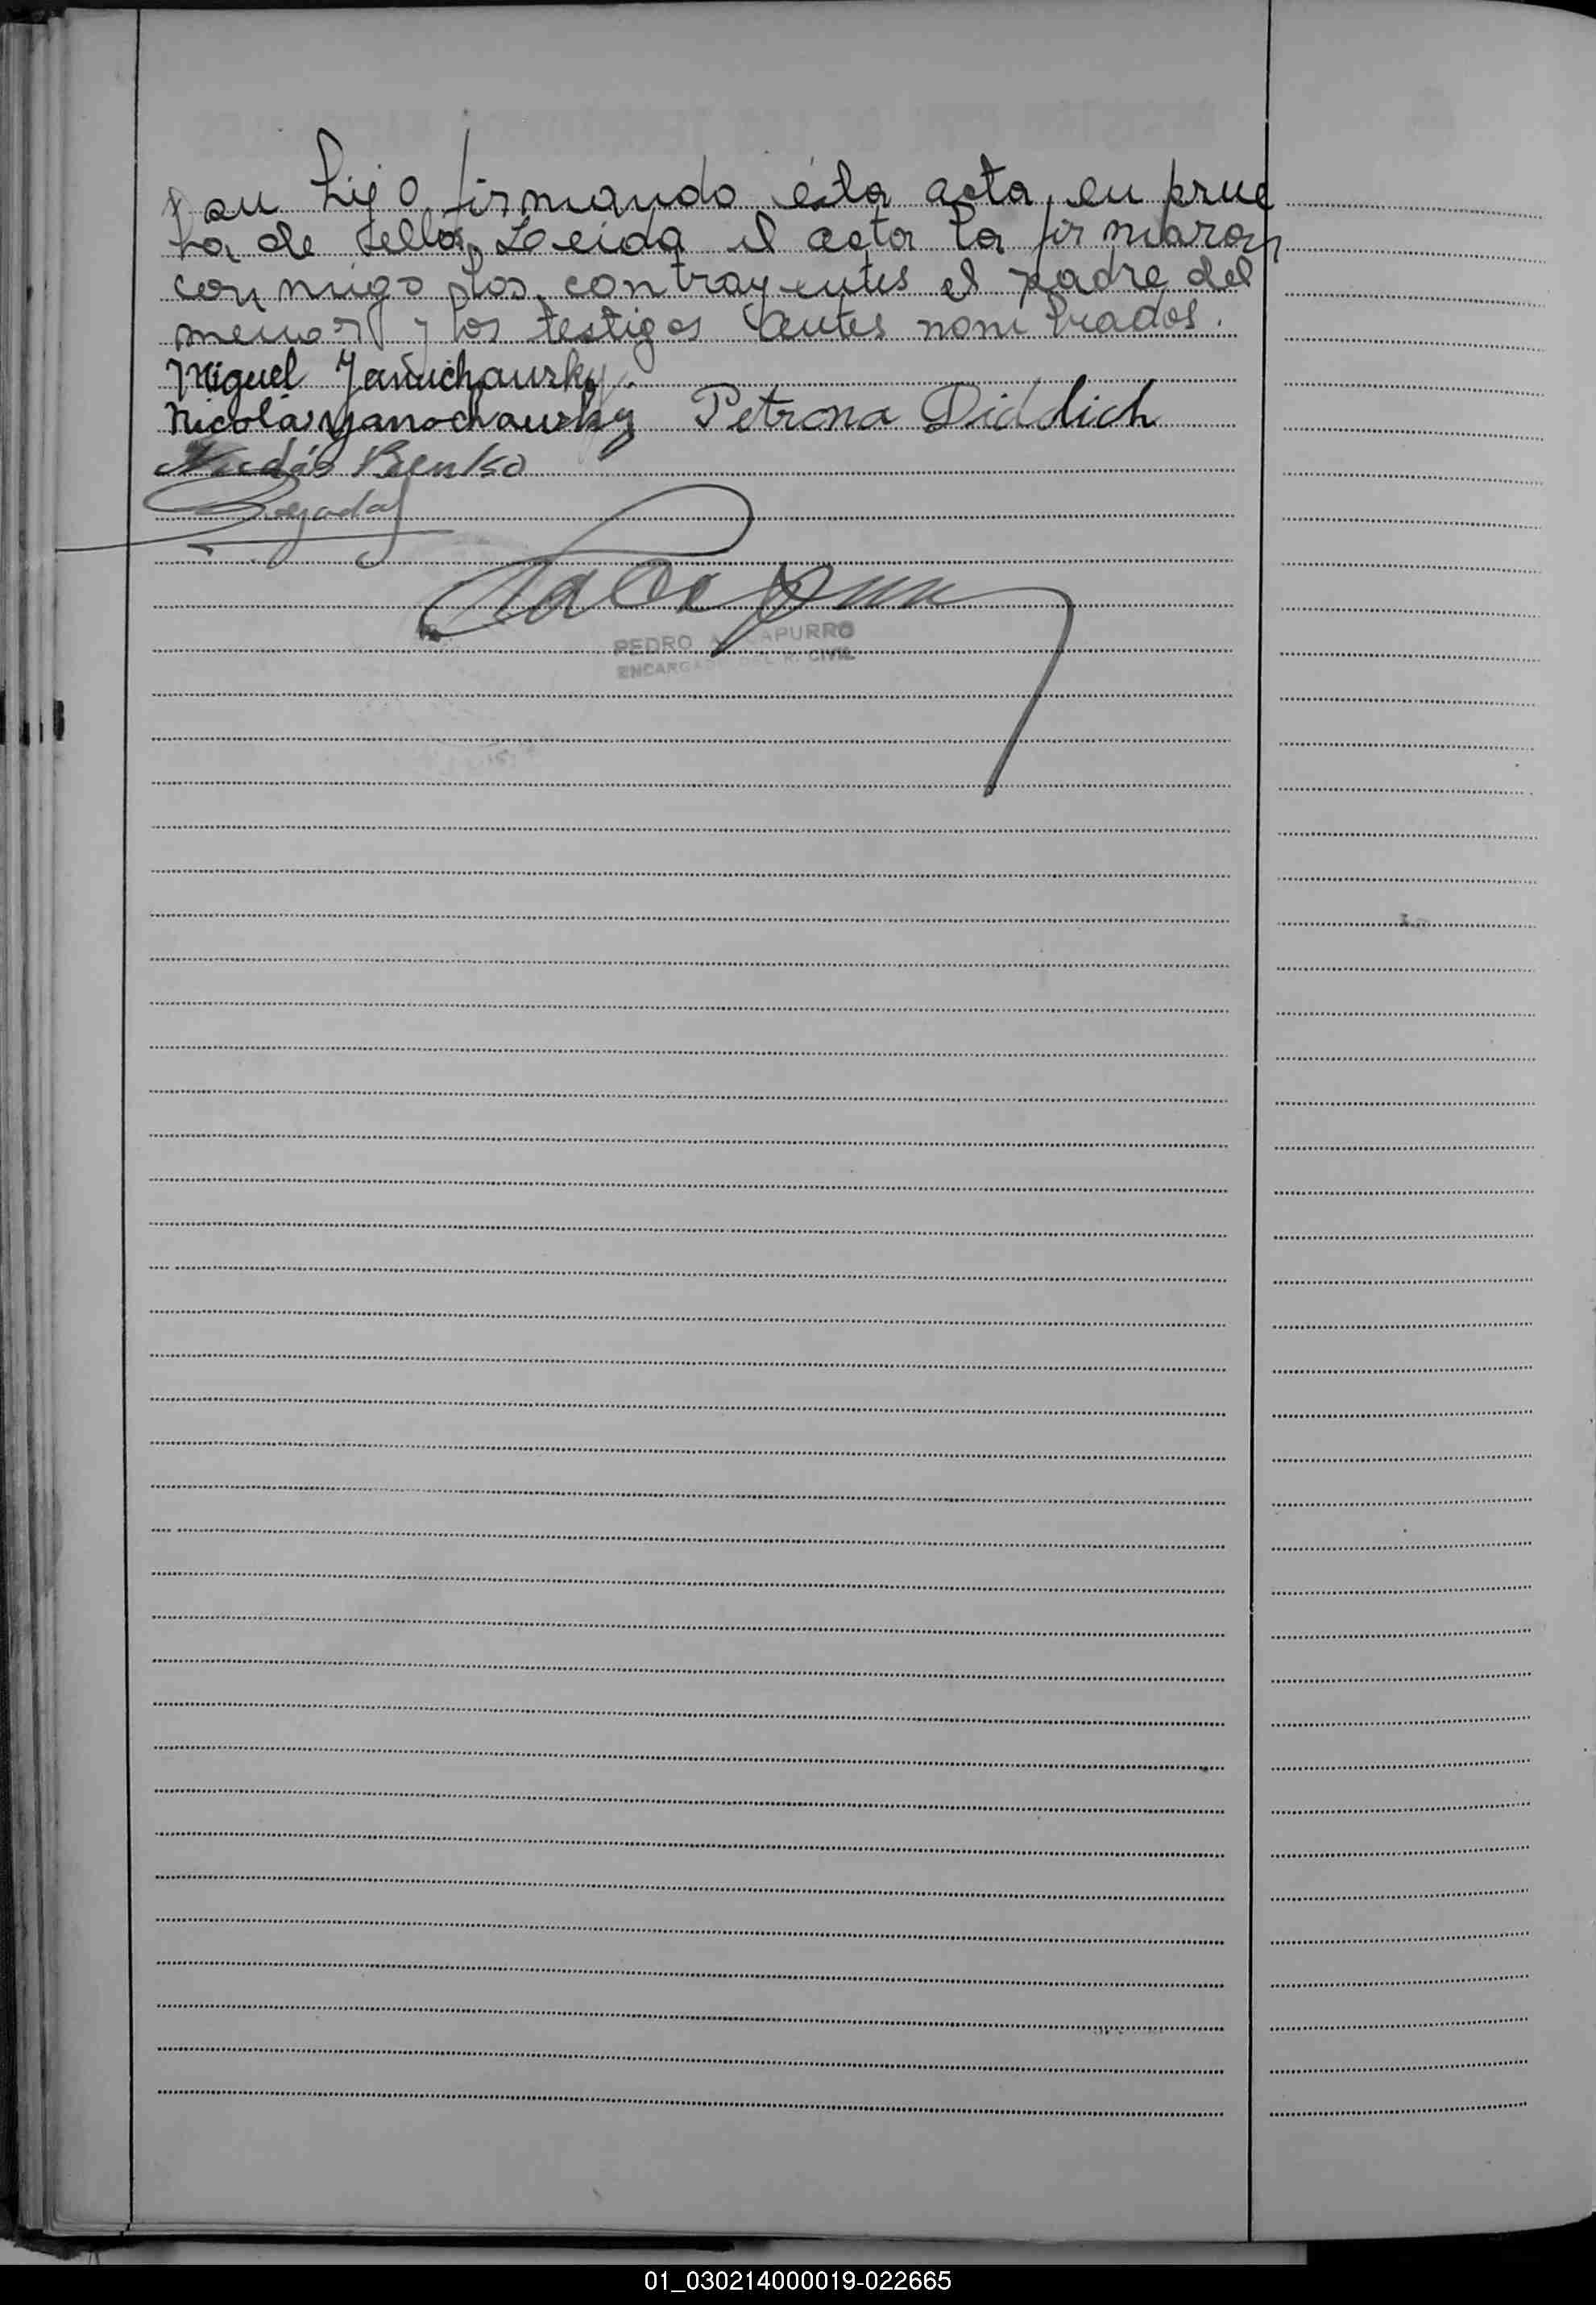 su hijo firmando ésta acta en prue
ba de ello. Leída el acta la firmaron
conmigo los contrayentes el padre del
menor y los testigos antes nombrados.
Miguel Januchausky.
Nicolás Yanochausky Petrona Diddich
Nicolás Benko
PEDRO A. CAPURRO
ENCARGADO DEL R. CIVIL
01_030214000019-022665